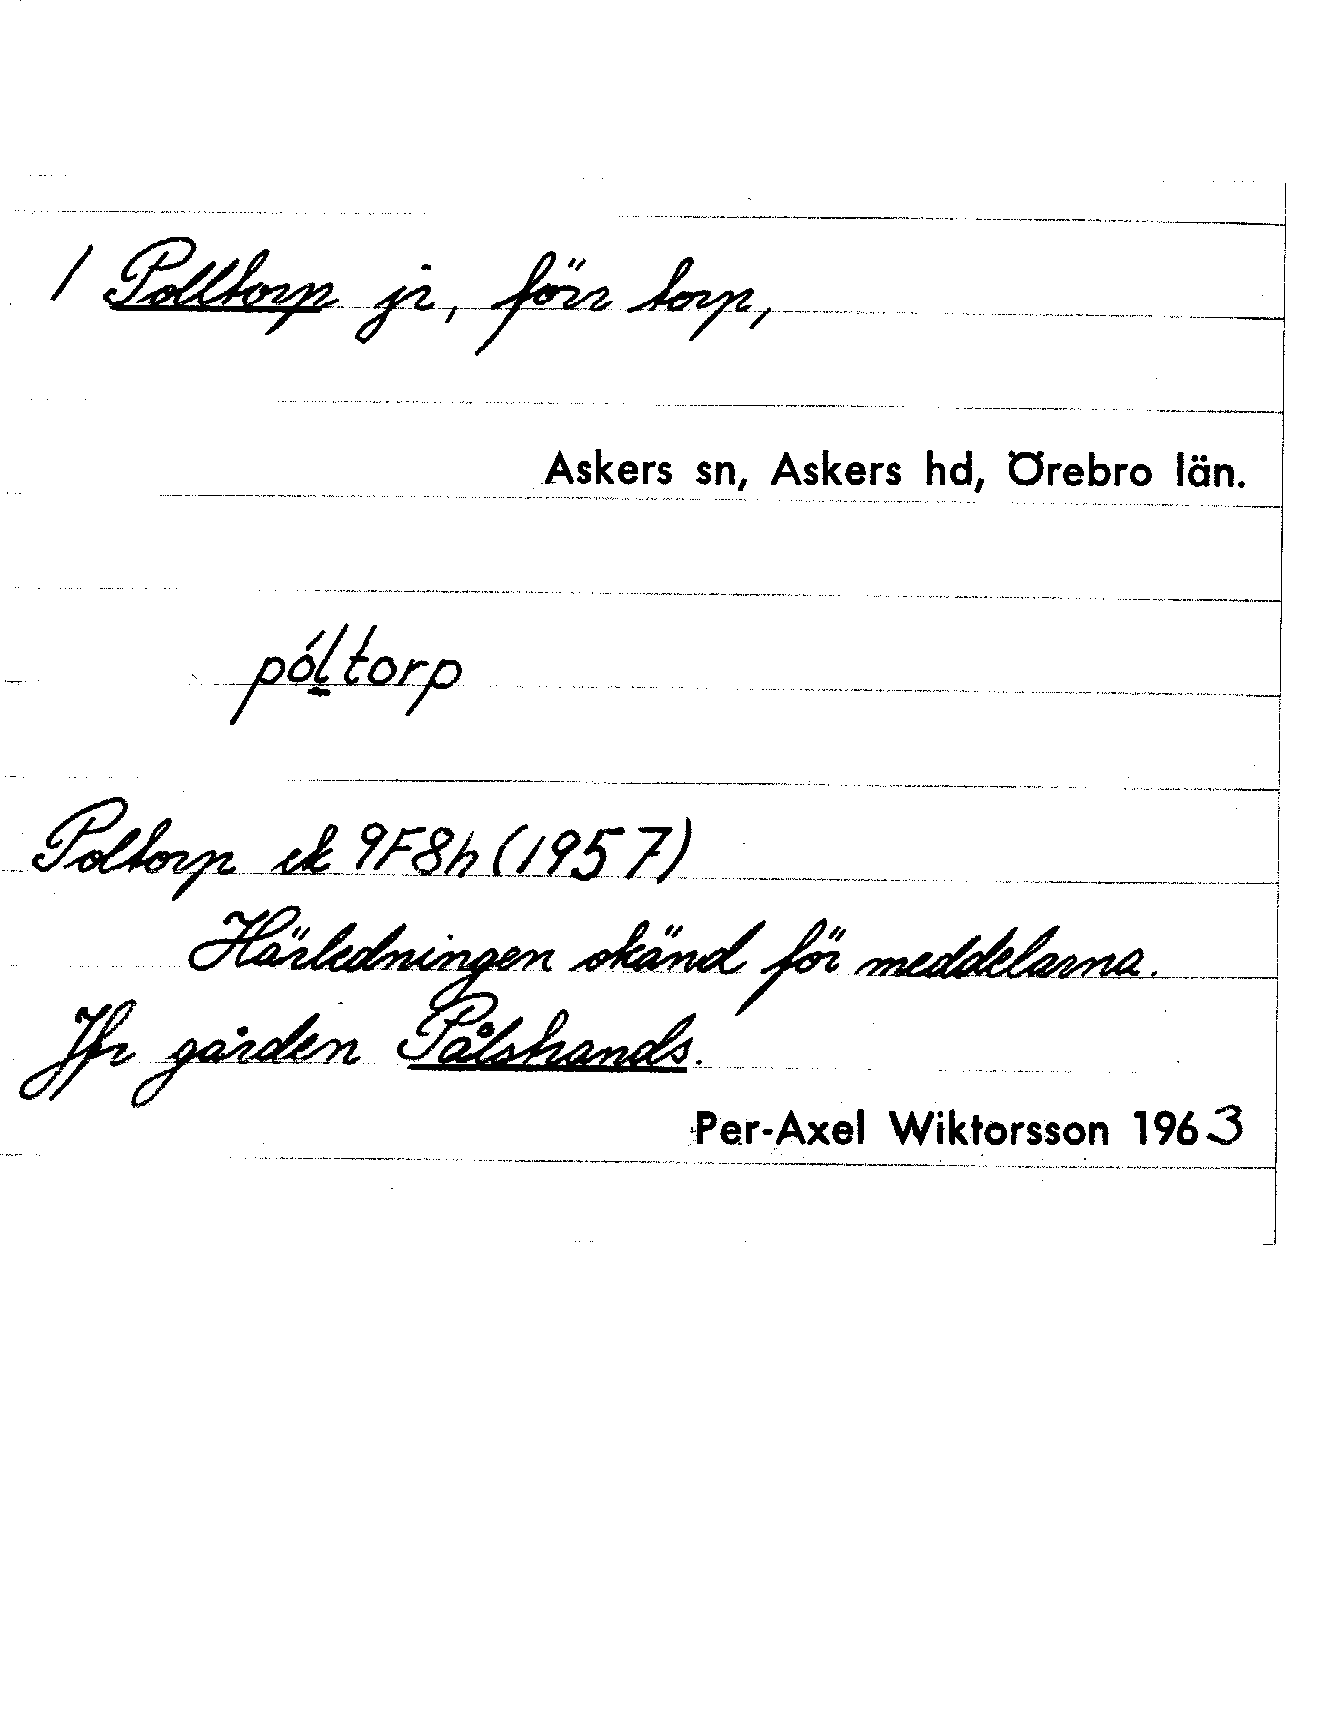 / Polltorp jr, förr torp,
Askers sn, Askers hd, Örebro län.
póltorp
Poltorp ek 9F8h (1957)
Härledningen okänd för meddelarna.
Jfr gården Pålshands.
Per-Axel Wiktorsson 1963